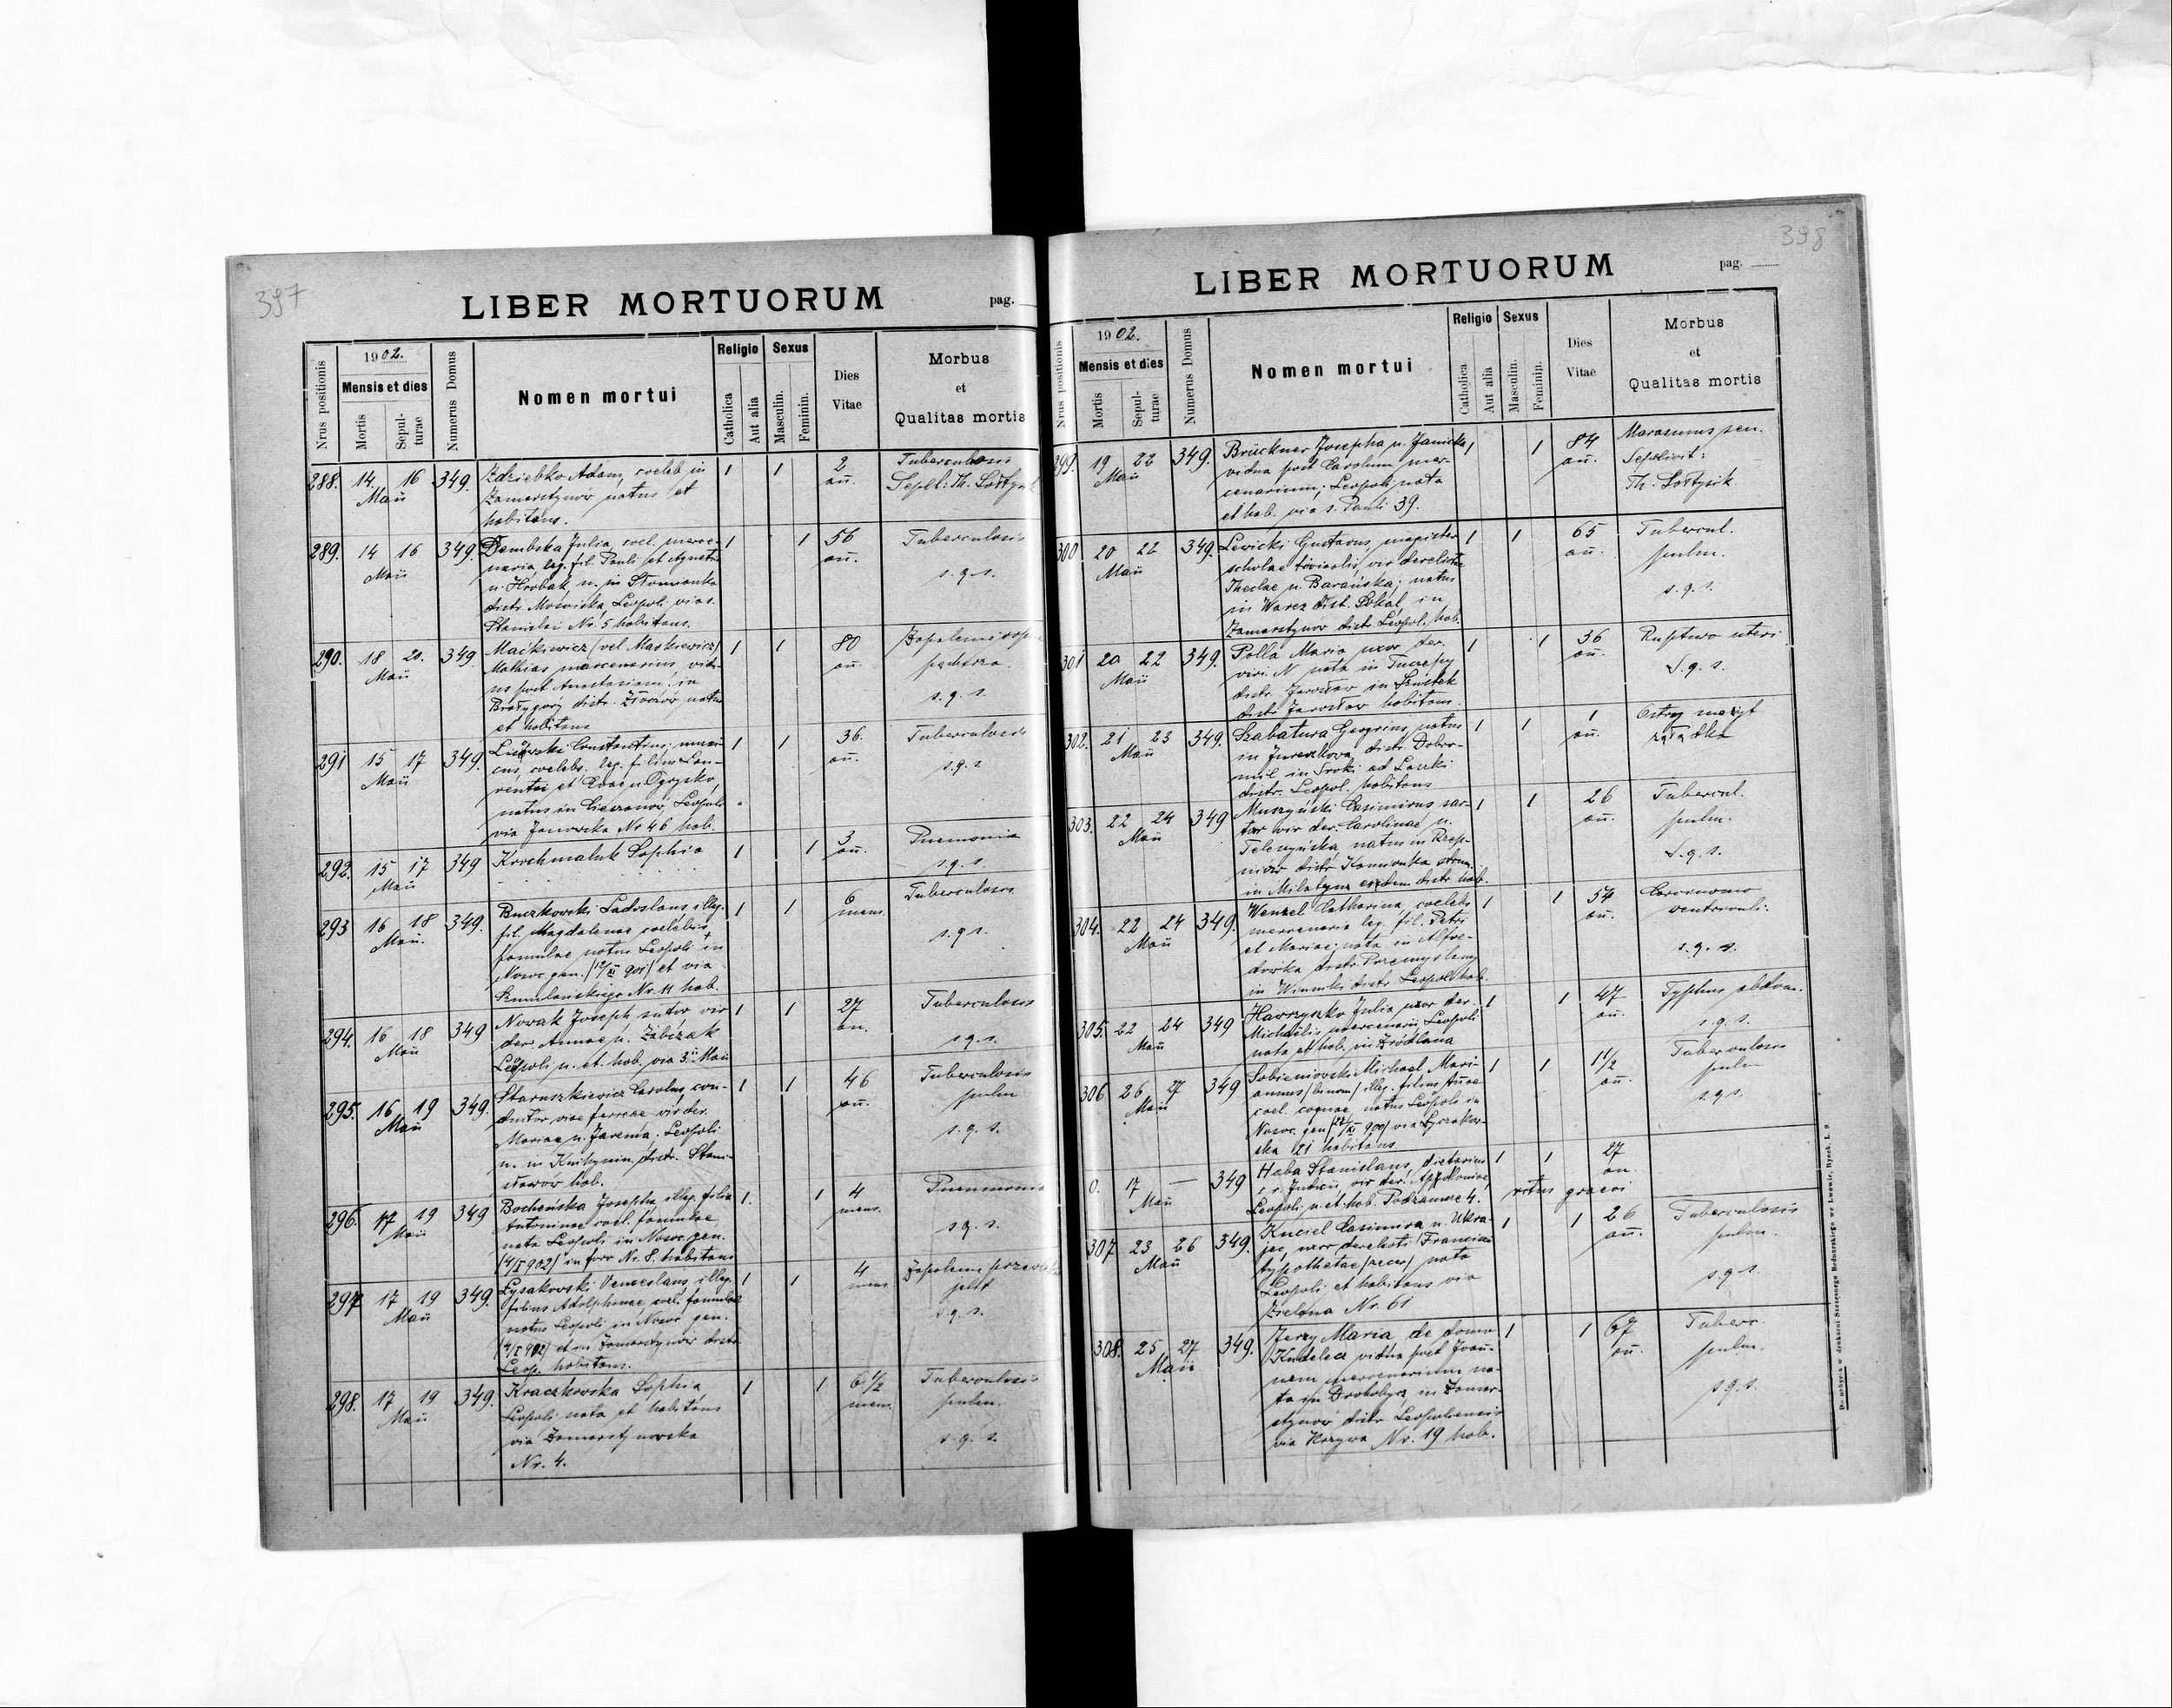 397
LIBER MORTUORUM
pag.
Nrus positionis
1902.
Mensis et dies
Mortis
Sepul-
turae
Numerus Domus
Nomen mortui
Religio
Catholica
Aut alia
Sexus
Masculin.
Feminin.
Dies
Vitae
Morbus
et
Qualitas mortis
288. 14. 16 349. Zdziebko Adam, coeleb in 1 1 2 Tuberculosis
Maii Zamarstynów natus et an. Sepel: Th. Sołtysik
habitans.
289. 14 16 349. Dembska Julia, coel. merce- 1 1 56 Tuberculosis
Maii naria leg. fil. Pauli et Agnetis an.
u. Hrobak, n. in s. q. s.
distr. Mościska, Leopoli via s.
Stanislai Nr. 5 habitans.
290. 18 20. 349 Maćkiewicz (vel Maskiewicz) 1 1 80 Zapalenie
Maii Mathias mercenarius, vidu- an.
us post Anastasiam; in s. q. s.
distr. Złoczów natus
et habitans
291 15 17 349. Constantinus; 1 1 36. Tuberculosis
Maii coelebs. leg. filius Lau- an. s. q. s
rentii et Evae n Ogrysko,
natus in Cieszanów, Leopoli
via Janowska Nr 46 hab.
292. 15 17 349 Krochmaluk Sophia 1 1 3 Pneumonia
Maii an. s. q. s.
293 16 18 349. Buczkowski Ladislaus illeg. 1 1 6 Tuberculosis
Maii. fil. Magdalenae coelebis mens.
famulae natus Leopoli in s. q. s.
Nosoc. gen. (12/XI 901) et via
Szumlańskiego Nr. 11 hab.
294. 16 18 349 Nowak Joseph sutor vir 1 1 27 Tuberculosis
Maii der. Annae n. an.
Leopoli n. et hab. via 3ii Maii s. q. s.
295. 16 19 349. Staruszkiewicz Carolus con- 1 1 46 Tuberculosis
Maii ductor viae ferreae vir der. an. pulm
Mariae n. Jarema. Leopoli s. q. s.
n. in Knihynin distr. Stani-
sławow hab.
296. 17 19 349 Bocheńska Josepha illeg. filia 1. 1 4 Pneumonia
Maii Antoninae coel. famulae mens.
nata Leopoli in Nosoc. gen. s. q. s.
(4/I 902) in foro Nr. 8. habitans
297 17 19 349. Łysakowski Venceslaus illeg. 1 1 4 Zapalenie
Maii filius Adolphinae coel. famulae mens.
natus Leopoli in Nosoc gen. s. q. s.
(4/I 902) et in Zamarstynów distr.
Leop. habitans.
298. 17 19 349. Kraczkowska Sophia 1 1 6 1/2 Tuberculosis
Maii Leopoli nata et habitans mens. pulm.
via Zamarstynowska s. q. s.
Nr. 4.
398
LIBER MORTUORUM
pag.
Nrus positionis
1902.
Mensis et dies
Mortis
Sepul-
turae
Numerus Domus
Nomen mortui
Religio
Catholica
Aut alia
Sexus
Masculin.
Feminin.
Dies
Vitae
Morbus
et
Qualitas mortis
299. 19 22 349. Brückner Josepha n. Janicka 1 1 84 Marasmus sen.
Maii vidua post Carolum mer- an. Sepelivit:
cenarium; Leopoli nata Th. Sołtysik.
et hab. via s. Pauli 39.
300 20 22 349. Lewicki Gustavus, magister 1 1 65 Tubercul.
Maii scholae trivialis, vir derelictae an. pulm.
Theclae n. Barańska; natus s. q. s.
in Warez dist. Sokal, in
Zamarstynow distr Leopol. hab.
301 20 22 349. Polla Maria uxor der. 1 1 36 Ruptura uteri
Maii viri. N nata in Tuczępy an. S. q. s.
distr. Jarosław in
distr Jarosław habitans.
302. 21 23 349. Szabatura Georgius, natus 1 1 1 Ostry nieżyt
Maii in Jureczkowa distr. Dobro- an. żołądka
mil in Sroki ad Laszki
distr. Leopol. habitans
303. 22 24 349 Muszyński Casimirus sar- 1 1 26 Tubercul.
Maii tor vir der. Carolinae n. an. pulm.
natus in Rzep-
niów distr Kamionka strum. S. q. s.
in Milatyn eodem distr hab.
304. 22 24 349. Wenzel Catharina, coelebs 1 1 54 Carcinoma
Maii mercenaria leg. fil. Petri an. ventriculi.
et Mariae; nata in Alfre-
dówka distr. Przemyslany s. q. s.
in Winniki distr Leopol hab.
305. 22 24 349 Hawryszko Julia uxor der. 1 1 47 Typhus abdom.
Maii Michaelis mercenarii Leopoli an. s. q. s.
nata et hab. in Źródlana
306 26 27 349 Sobieniowski Michael Mari- 1 1 1 1/2 Tuberculosis
Maii annus (binom) illeg. filius Annae an. pulm
coel. coquae natus Leopoli in s. q. s.
Nosoc. gen (22/XI 900) via Łyczakow-
ska 121 habitans
0. 17 — 349 Haba Stanislaus, dietarius 1 1 27
Maii vir der. Apoloniae an.
Leopoli n. et hab. Podzamcze 4. ritus graeci
307 23 26 349. Kuciel Casimira n. Ukra- 1 1 26 Tuberculosis
Maii jec, uxor derelicti Francisci an. pulm.
typothetae (zecer) nata
Leopoli et habitans via s. q. s.
Zielona Nr. 61
308. 25 27 349. Jerzy Maria de domo 1 1 67 Tuberc.
Maii Kudelec vidua post Joan- an. pulm.
nem mercenarium na-
ta in Drohobycz in Zamar- s. q. s.
stynów distr Leopoliensis
via Krzywa Nr. 19 hab.
Do nabycia w drukarni Szczęsnego Bednarskiego we Lwowie, Rynek, L. 9.